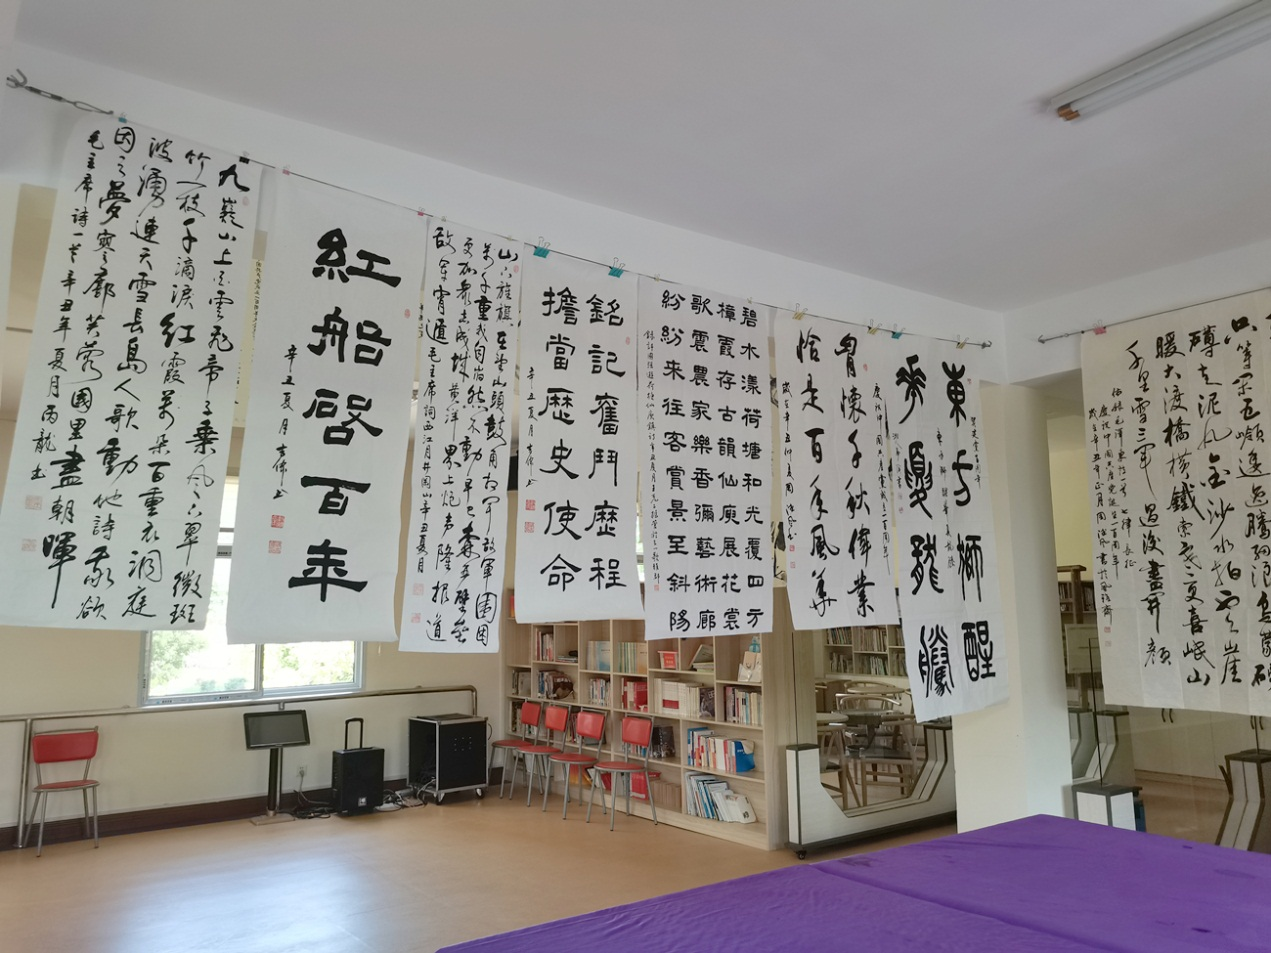 九嶷山上白雲飛帝子乘風下翠微斑
竹一枝千滴淚紅霞萬朵百重衣洞庭
波湧連天雪長島人歌動地詩我欲
因之夢寥廓芙蓉國里盡朝暉
毛主席詩一首辛丑年夏月丙龍书
紅船啓百年
辛丑夏月
山下旌旗在望山頭鼓角相闻敌軍圍困
萬千重我自巋然不動早已森嚴壁壘
更加衆志成城黄洋界上炮声隆報道
敌軍宵遁毛主席詞西江月井岡山辛丑夏月
銘記舊鬥歷程
擔當歷史使命
辛丑夏月
碧水漾荷塘和光覆四方
樟霞存古韻仙庾展花裳
歌震農家樂香彌藝術廊
紛紛来往客賞景至斜陽
胷懷千秋偉業
恰是百年風華
東方獅醒
華夏龍騰
只等閒五嶺逶迤騰細浪烏蒙磅
礴走泥丸金沙水拍雲崖
暖大渡橋橫鐵索寒更喜岷山
千里雪三軍過後盡開顔